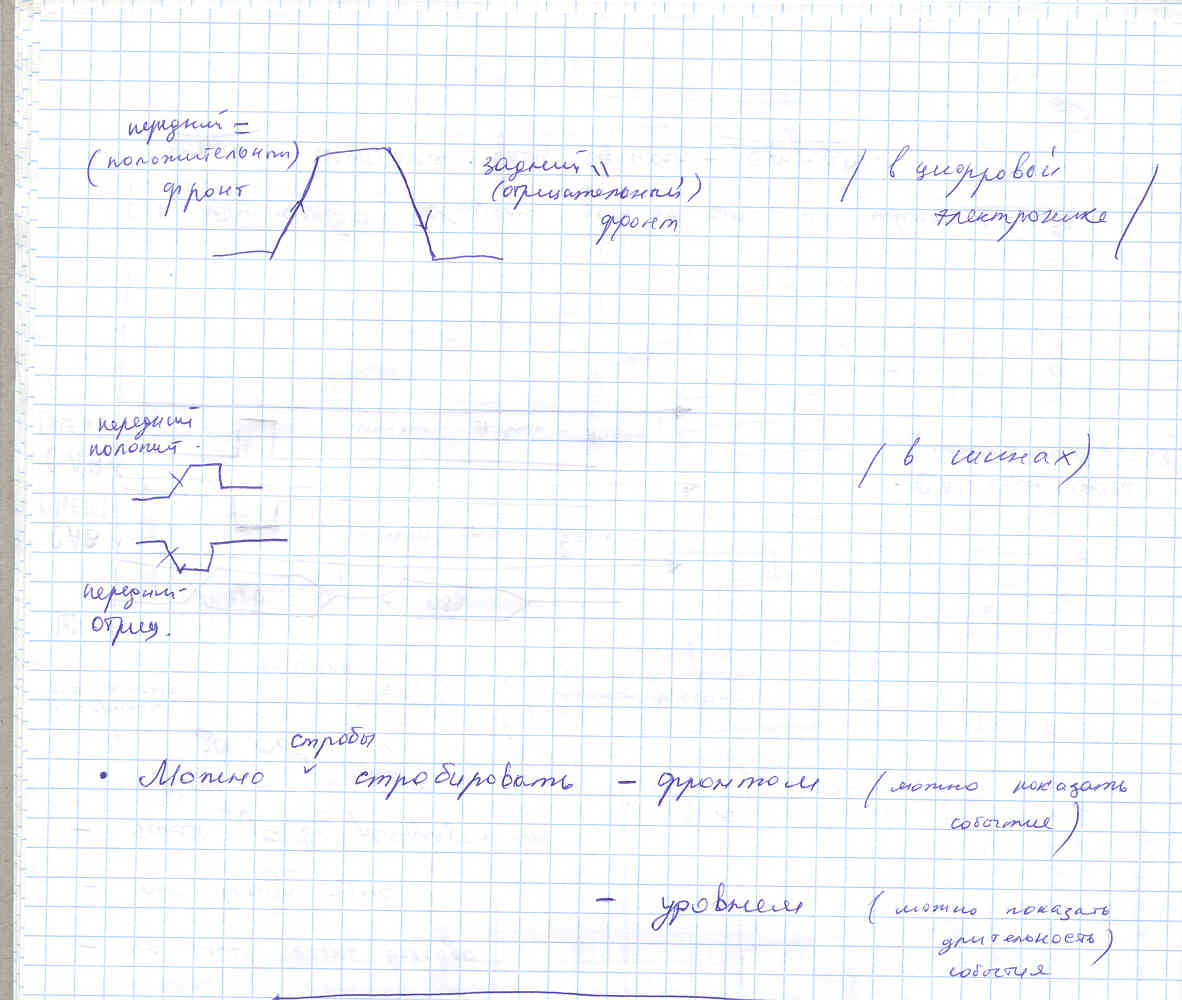 передний =
(положительный)
фронт
задний =
(отрицательный)
фронт
/ в цифровой
электронике /
передний
полопит.
/ в шинах)
передний
отриц.
стробы
• Можно ˅ стробировать – фронтом (можно показать
событие)
– уровнем (можно показать
длительность)
события